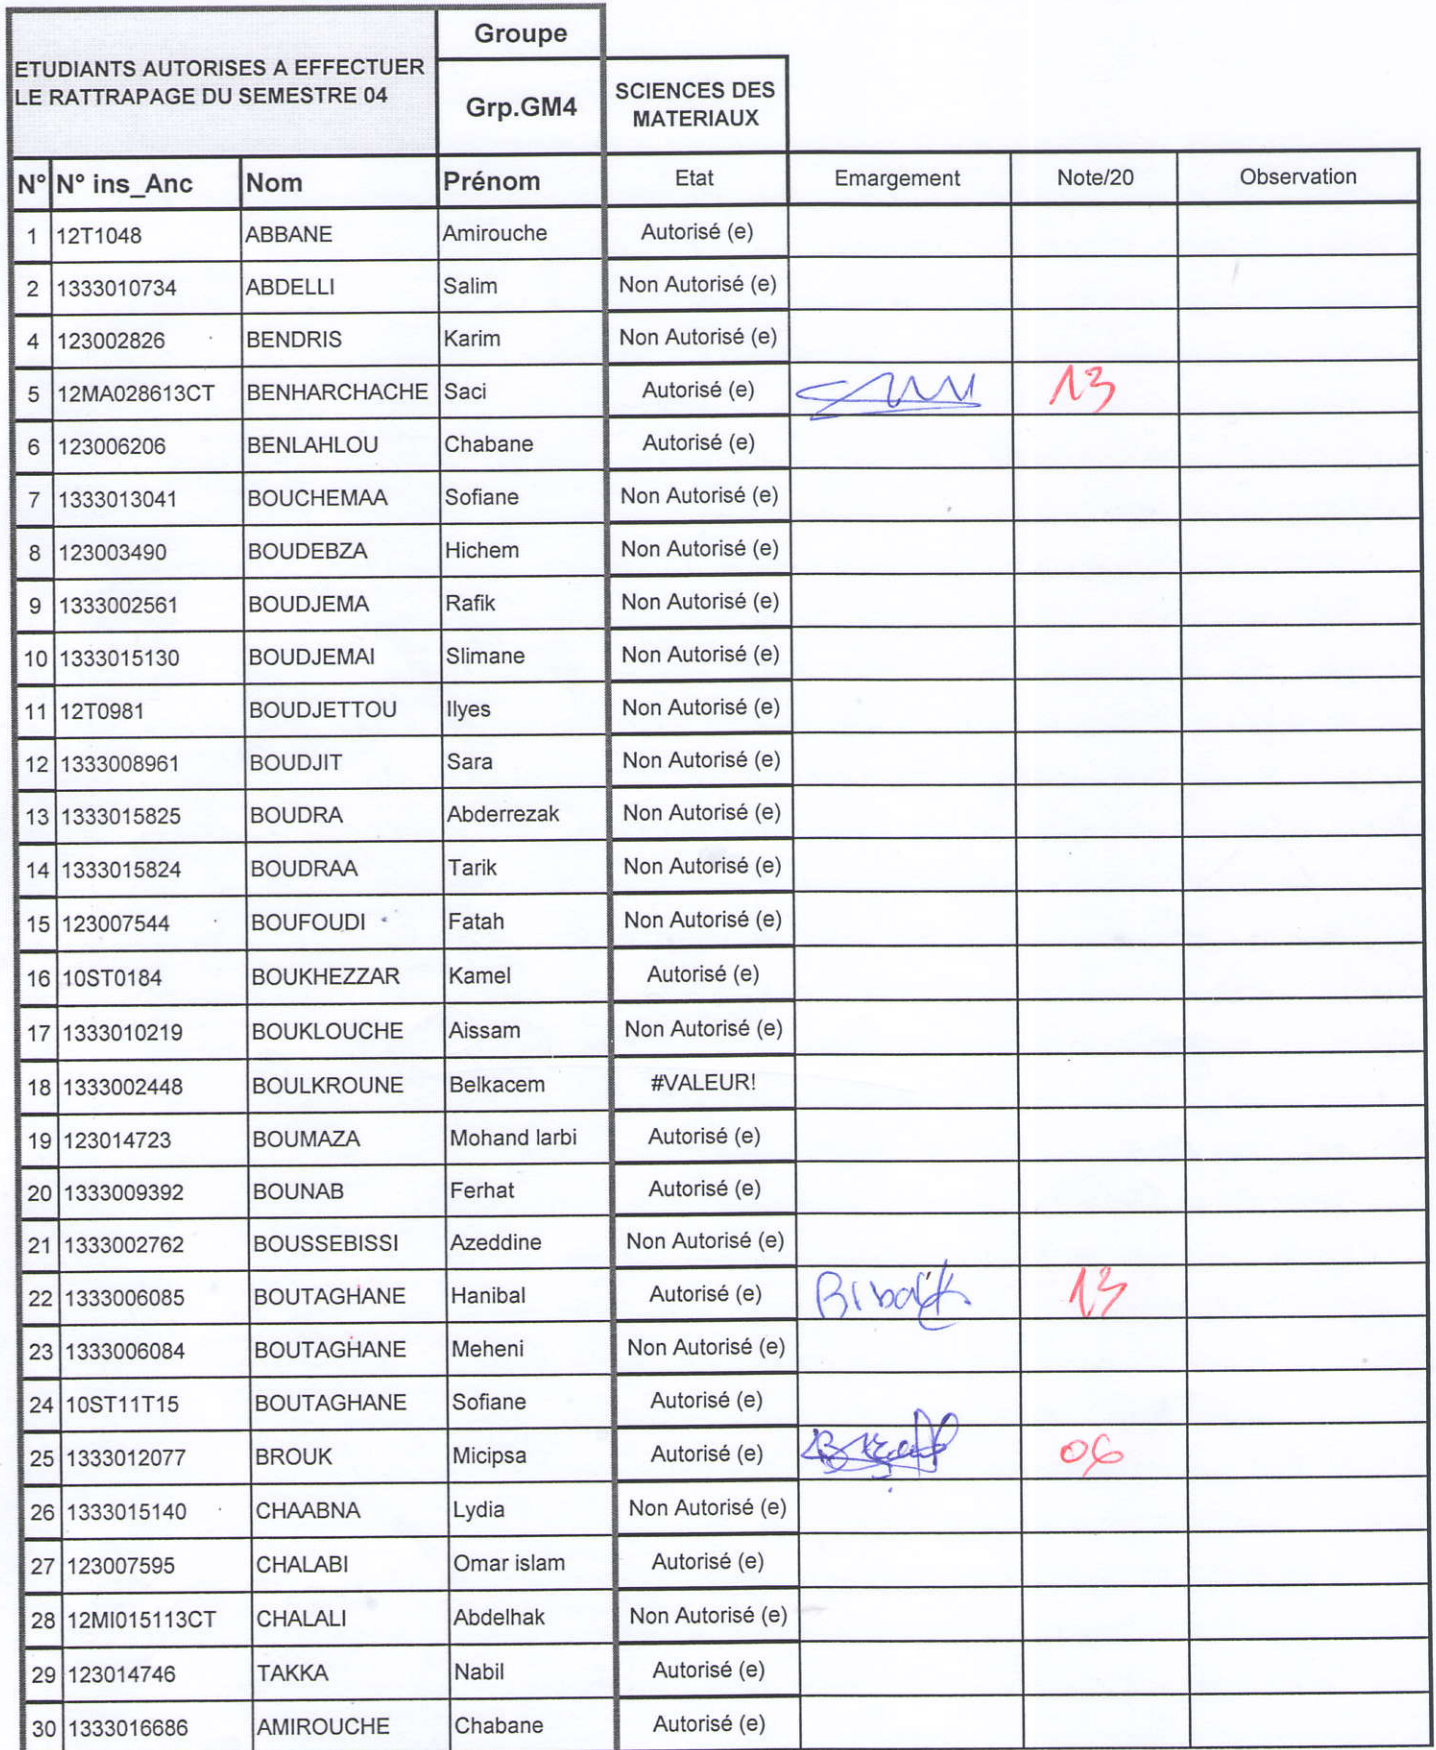 Groupe
ETUDIANTS AUTORISES A EFFECTUER
LE RATTRAPAGE DU SEMESTRE 04
Grp.GM4
SCIENCES DES
MATERIAUX
N° N° ins_Anc Nom Prénom Etat Emargement Note/20 Observation
1 12T1048 ABBANE Amirouche Autorisé (e)
2 1333010734 ABDELLI Salim Non Autorisé (e)
4 123002826 BENDRIS Karim Non Autorisé (e)
5 12MA028613CT BENHARCHACHE Saci Autorisé (e) 13
6 123006206 BENLAHLOU Chabane Autorisé (e)
7 1333013041 BOUCHEMAA Sofiane Non Autorisé (e)
8 123003490 BOUDEBZA Hichem Non Autorisé (e)
9 1333002561 BOUDJEMA Rafik Non Autorisé (e)
10 1333015130 BOUDJEMAI Slimane Non Autorisé (e)
11 12T0981 BOUDJETTOU Ilyes Non Autorisé (e)
12 1333008961 BOUDJIT Sara Non Autorisé (e)
13 1333015825 BOUDRA Abderrezak Non Autorisé (e)
14 1333015824 BOUDRAA Tarik Non Autorisé (e)
15 123007544 BOUFOUDI Fatah Non Autorisé (e)
16 10ST0184 BOUKHEZZAR Kamel Autorisé (e)
17 1333010219 BOUKLOUCHE Aissam Non Autorisé (e)
18 1333002448 BOULKROUNE Belkacem #VALEUR!
19 123014723 BOUMAZA Mohand larbi Autorisé (e)
20 1333009392 BOUNAB Ferhat Autorisé (e)
21 1333002762 BOUSSEBISSI Azeddine Non Autorisé (e)
22 1333006085 BOUTAGHANE Hanibal Autorisé (e) 13
23 1333006084 BOUTAGHANE Meheni Non Autorisé (e)
24 10ST11T15 BOUTAGHANE Sofiane Autorisé (e)
25 1333012077 BROUK Micipsa Autorisé (e) 06
26 1333015140 CHAABNA Lydia Non Autorisé (e)
27 123007595 CHALABI Omar islam Autorisé (e)
28 12MI015113CT CHALALI Abdelhak Non Autorisé (e)
29 123014746 TAKKA Nabil Autorisé (e)
30 1333016686 AMIROUCHE Chabane Autorisé (e)